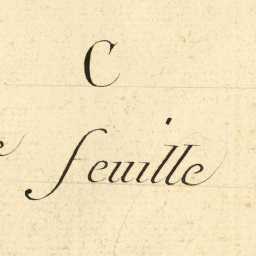 C
e feuille